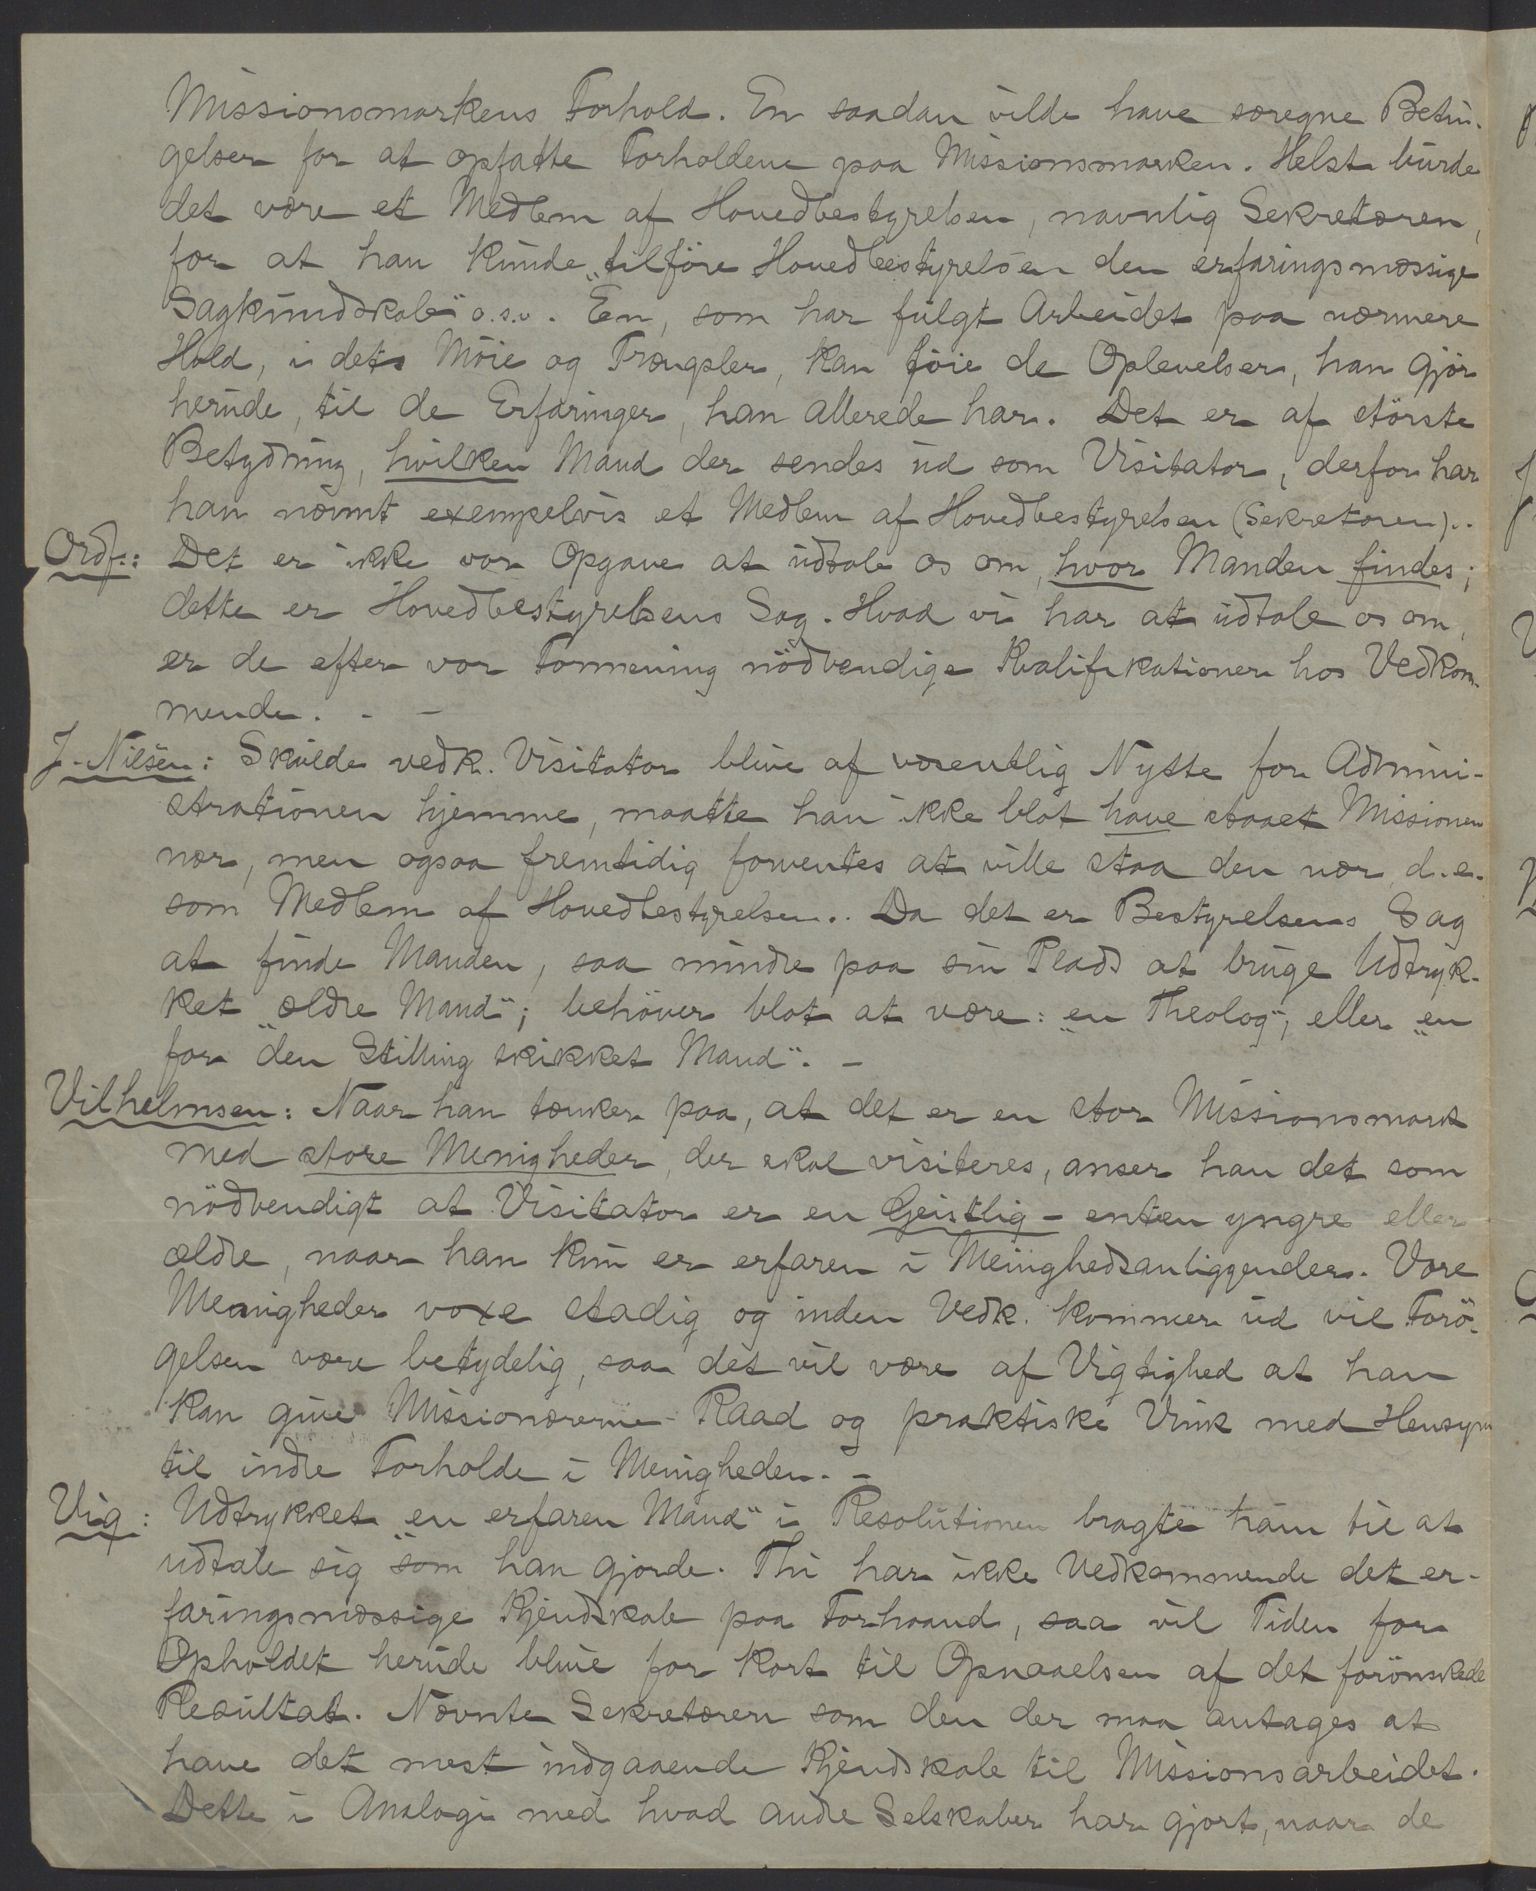 Missionsmarkens Forhold. En saadan vilde have særegne Betin-
gelser for at opfatte Forholdene paa Missionsmarken. Helst burde
det være et Medlem af Hovedbestyrelsen, navnlig Sekretæren,
for at han kunde „tilföre Hovedbestyrelsen den erfaringsmæssige
Sagkundskab" o.s.v. En, som har fulgt Arbeidet paa nærmere
Hold, i dets Möie og Trængsler, kan föie de Oplevelser, han gjör
herude, til de Erfaringer, han allerede har. Det er af störste
Betydning, hvilken Mand der sendes ud som Visitator, derfor har
han nævnt exempelvis et Medlem af Hovedbestyrelsen (Sekretæren)..
Ordf.: Det er ikke vor Opgave at udtale os om, hvor Manden findes;
dette er Hovedbestyrelsens Sag. Hvad vi har at udtale os om,
er de efter vor Formening nödvendige Kvalifikationer hos Vedkom-
mende. - -
J. Nilsen: Skulde vedk. Visitator blive af væsentlig Nytte for Admini-
strationen hjemme, maatte han ikke blot have staaet Missionen
nær, men ogsaa fremtidig forventes at ville staa den nær, d.e.
som Medlem af Hovedbestyrelsen.. Da det er Bestyrelsens Sag
at finde Manden, saa mindre paa sin Plads at bruge Udtryk-
ket „ældre Mand"; behöver blot at være: „en Theolog", eller „en
for den Stilling skikket Mand". -
Vilhelmsen: Naar han tænker paa, at det er en stor Missionsmark
med store Menigheder, der skal visiteres, anser han det som
nödvendigt at Visitator er en Geistlig - enten yngre eller
ældre, naar han kun er erfaren i Menighedsanliggender. Vore
Menigheder voxe stadig og inden Vedk. kommer ud vil Forö-
gelsen være betydelig, saa det vil være af Vigtighed at han
kan give Missionærerne Raad og praktiske Vink med Hensyn
til indre Forholde i Menigheden. -
Vig: Udtrykket „en erfaren Mand" i Resolutionen bragte ham til at
udtale sig som han gjorde. Thi har ikke Vedkommende det er-
faringsmæssige Kjendskab paa Forhaand, saa vil Tiden for
Opholdet herude blive for kort til Opnaaelsen af det forönskede
Resultat. Nævnte Sekretæren som den der maa antages at
have det mest indgaaende Kjendskab til Missionsarbeidet.
Dette i Analogi med hvad andre Selskaber har gjort, naar de